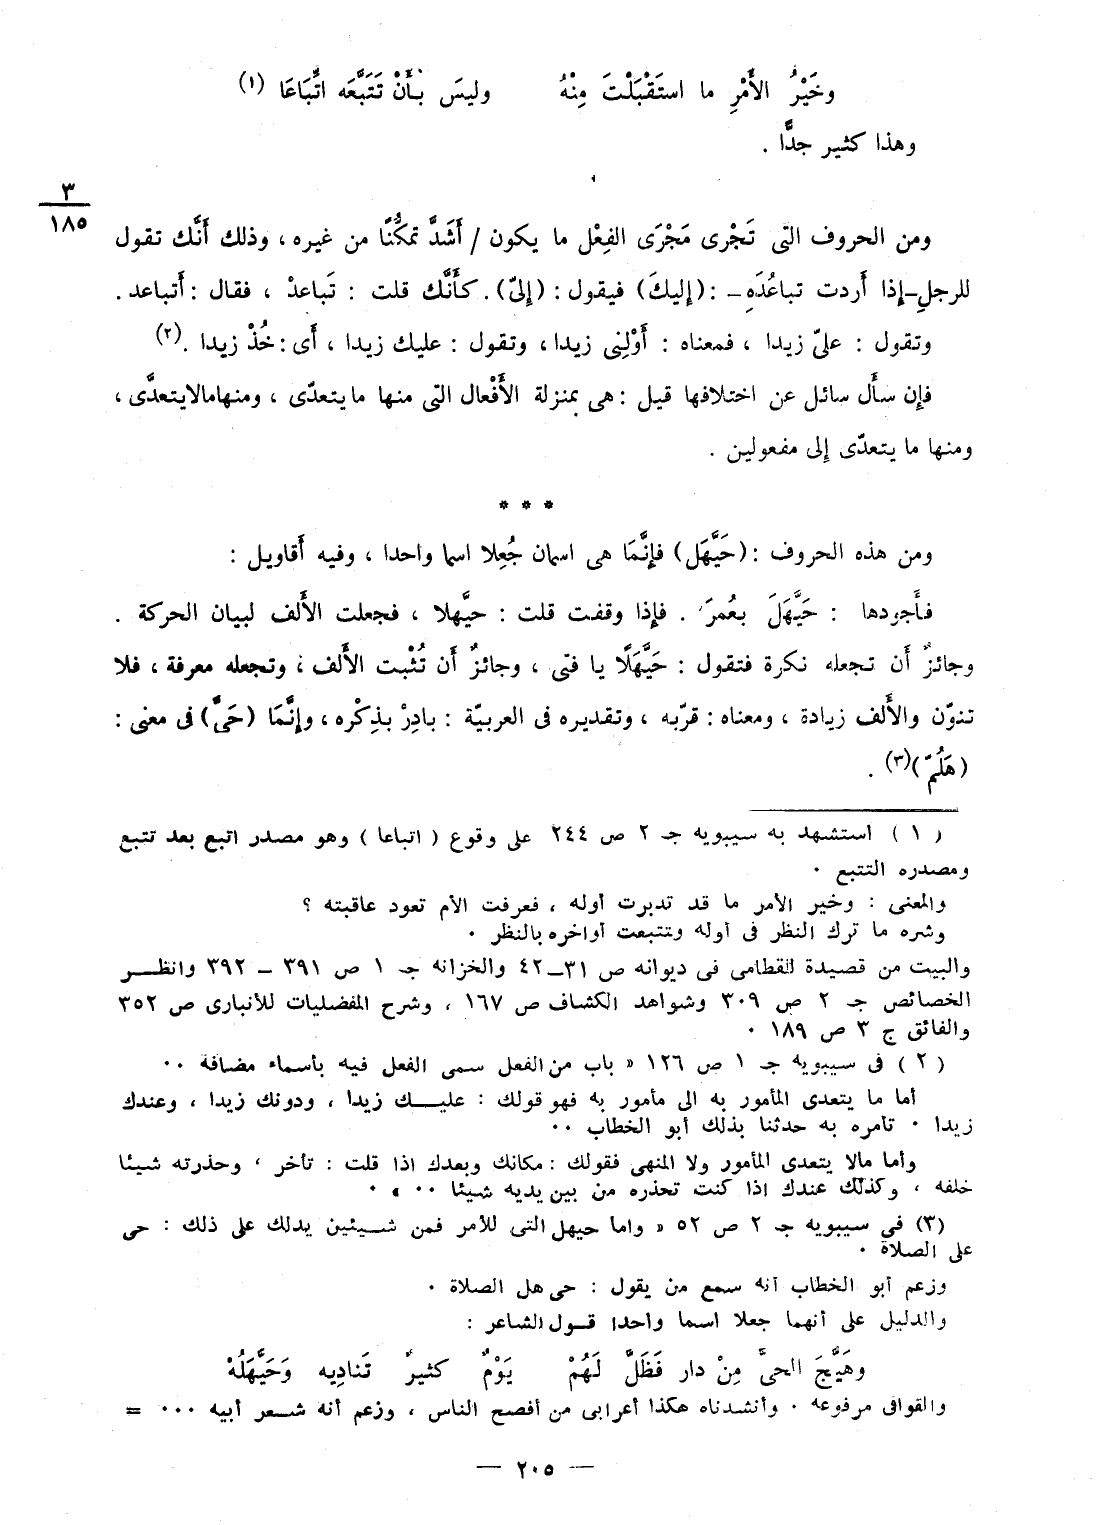 وخَيْرُ الأَمْرِ ما استَقْبَلْتَ مِنْهُ وليسَ بأَنْ تَتَبَّعَه اتِّبَاعَا (١)
وهذا كثير جدًّا .
٣
١٨٥
ومن الحروف التى تَجْرى مَجْرَى الفِعْل ما يكون / أَشَدَّ تمكُّنًا من غيره ، وذلك أَنَّك تقول
للرجلِ–إذا أَردت تباعُدَهِ– : (إليكَ) فيقول : (إلىّ). كأَنَّك قلت : تَباعدْ ، فقال : أَتباعد .
وتقول : علىّ زيدا ، فمعناه : أَوْلِنِى زيدا ، وتقول : عليك زيدا ، أَى : خُذْ زيدا .(٢)
فإن سأَل سائل عن اختلافها قيل : هى بمنزلة الأَفْعال التى منها ما يتعدّى ، ومنهامالايتعدَّى ،
ومنها ما يتعدّى إلى مفعولين .
* * *
ومن هذه الحروف : (حَيَّهَل) فإنَّمَا هى اسمان جُعِلا اسما واحدا ، وفيه أَقاويل :
فأَجودها : حَيَّهَلَ بعُمرَ . فإذا وقفت قلت : حيَّهلا ، فجعلت الأَلف لبيان الحركة .
وجائزٌ أَن تجعله نكرة فتقول : حَيَّهَلًا يا فتى ، وجائزٌ أَن تُثْبت الأَلف ، وتجعله معرفة ، فلا
تنوّن والأَلف زيادة ، ومعناه : قرّبه ، وتقديره فى العربيّة : بادِرْ بذِكْره ، وإنَّمَا (حَىَّ) فى معنى :
(هَلُمّ)(٣) .
(١) استشهد به سيبويه جـ ٢ ص ٢٤٤ على وقوع ( اتباعا ) وهو مصدر اتبع بعد تتبع
ومصدره التتبع ٠
والمعنى : وخير الأمر ما قد تدبرت أوله ، فعرفت الأم تعود عاقبته ؟
وشره ما ترك النظر فى أوله وتتبعت أواخره بالنظر ٠
والبيت من قصيدة القطامى فى ديوانه ص ٣١–٤٢ والخزانه جـ ١ ص ٣٩١ – ٣٩٢ وانظر
الخصائص جـ ٢ ص ٣٠٩ وشواهد الكشاف ص ١٦٧ ، وشرح المفضليات للأنبارى ص ٣٥٢
والفائق ج ٣ ص ١٨٩ ٠
(٢) فى سيبويه جـ ١ ص ١٢٦ « باب من الفعل سمى الفعل فيه بأسماء مضافة ٠٠
أما ما يتعدى المأمور به الى مأمور به فهو قولك : عليك زيدا ، ودونك زيدا ، وعندك
زيدا ٠ تأمره به حدثنا بذلك أبو الخطاب ٠٠
وأما مالا يتعدى المأمور ولا المنهى فقولك : مكانك وبعدك اذا قلت : تأخر ، وحذرته شيئا
خلفه ، وكذلك عندك اذا كنت تحذره من بين يديه شيئا ٠٠ » ٠
(٣) فى سيبويه جـ ٢ ص ٥٢ « واما حيهل التى للأمر فمن شيئين يدلك على ذلك : حى
على الصلاة ٠
وزعم أبو الخطاب أنه سمع من يقول : حى هل الصلاة ٠
والدليل على أنهما جعلا اسما واحدا قول الشاعر :
وهَيَّجَ الحىَّ مِنْ دار فَظَلَّ لَهُمْ يَوْمٌ كثيرٌ تَناديِه وَحَيَّهَلُهْ
والقوافى مرفوعه ٠ وأنشدناه هكذا أعرابى من أفصح الناس ، وزعم أنه شعر أبيه ٠٠٠ =
— ٢٠٥ —